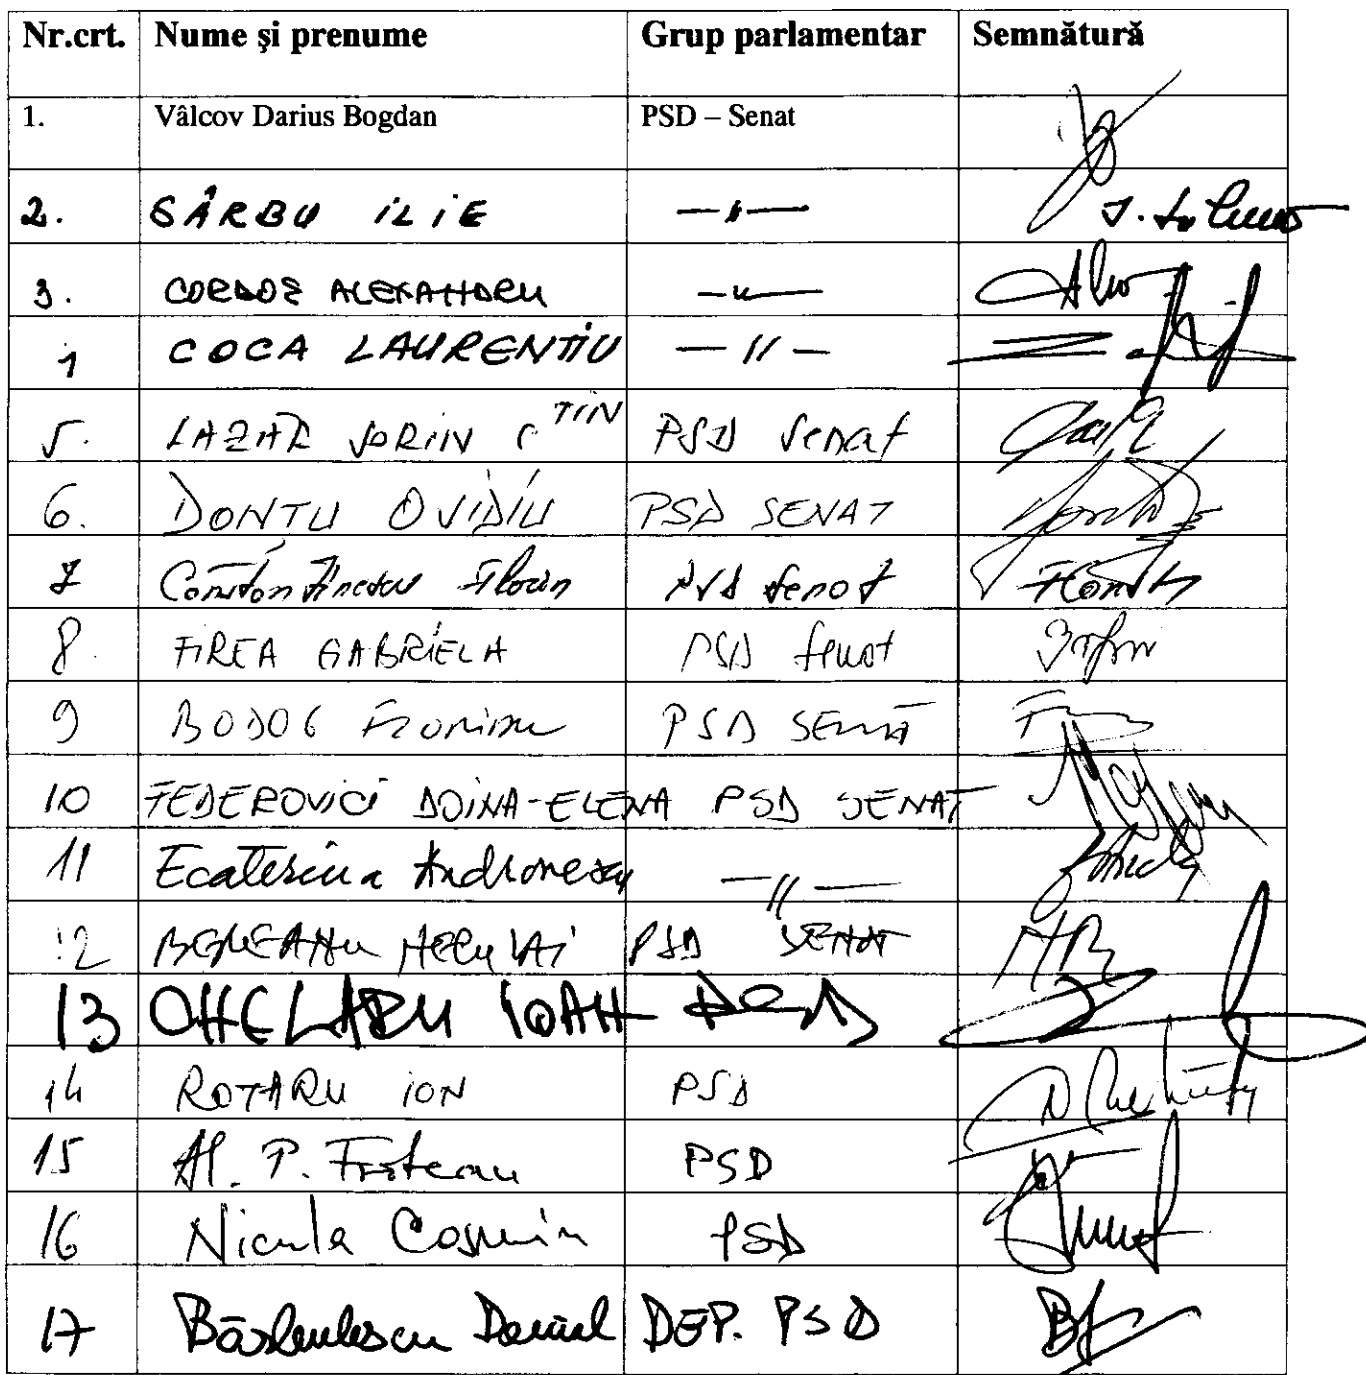 Nr.crt. Nume și prenume Grup parlamentar Semnătură
1. Vâlcov Darius Bogdan PSD – Senat
2. SÂRBU ILIE —〃—
3. CORDOȘ ALEXANDRU —〃—
COCA LAURENȚIU —〃—
5. LAZĂR SORIN C TIN PSD Senat
6. DONTU OVIDIU PSD SENAT
7 Constantinescu Florin PSD Senat
8. FIREA GABRIELA PSD Senat
9 BODOG Florian PSD SENAT
10 FEDEROVICI DOINA-ELENA PSD SENAT
11 Ecaterina Andronescu —〃—
12 PSD SENAT
13 CHELARU IOAN PSD
14 ROTARU ION PSD
15 Al. P. PSD
16 Nicula Cosmin PSD
17 Bărbulescu Daniel DEP. PSD